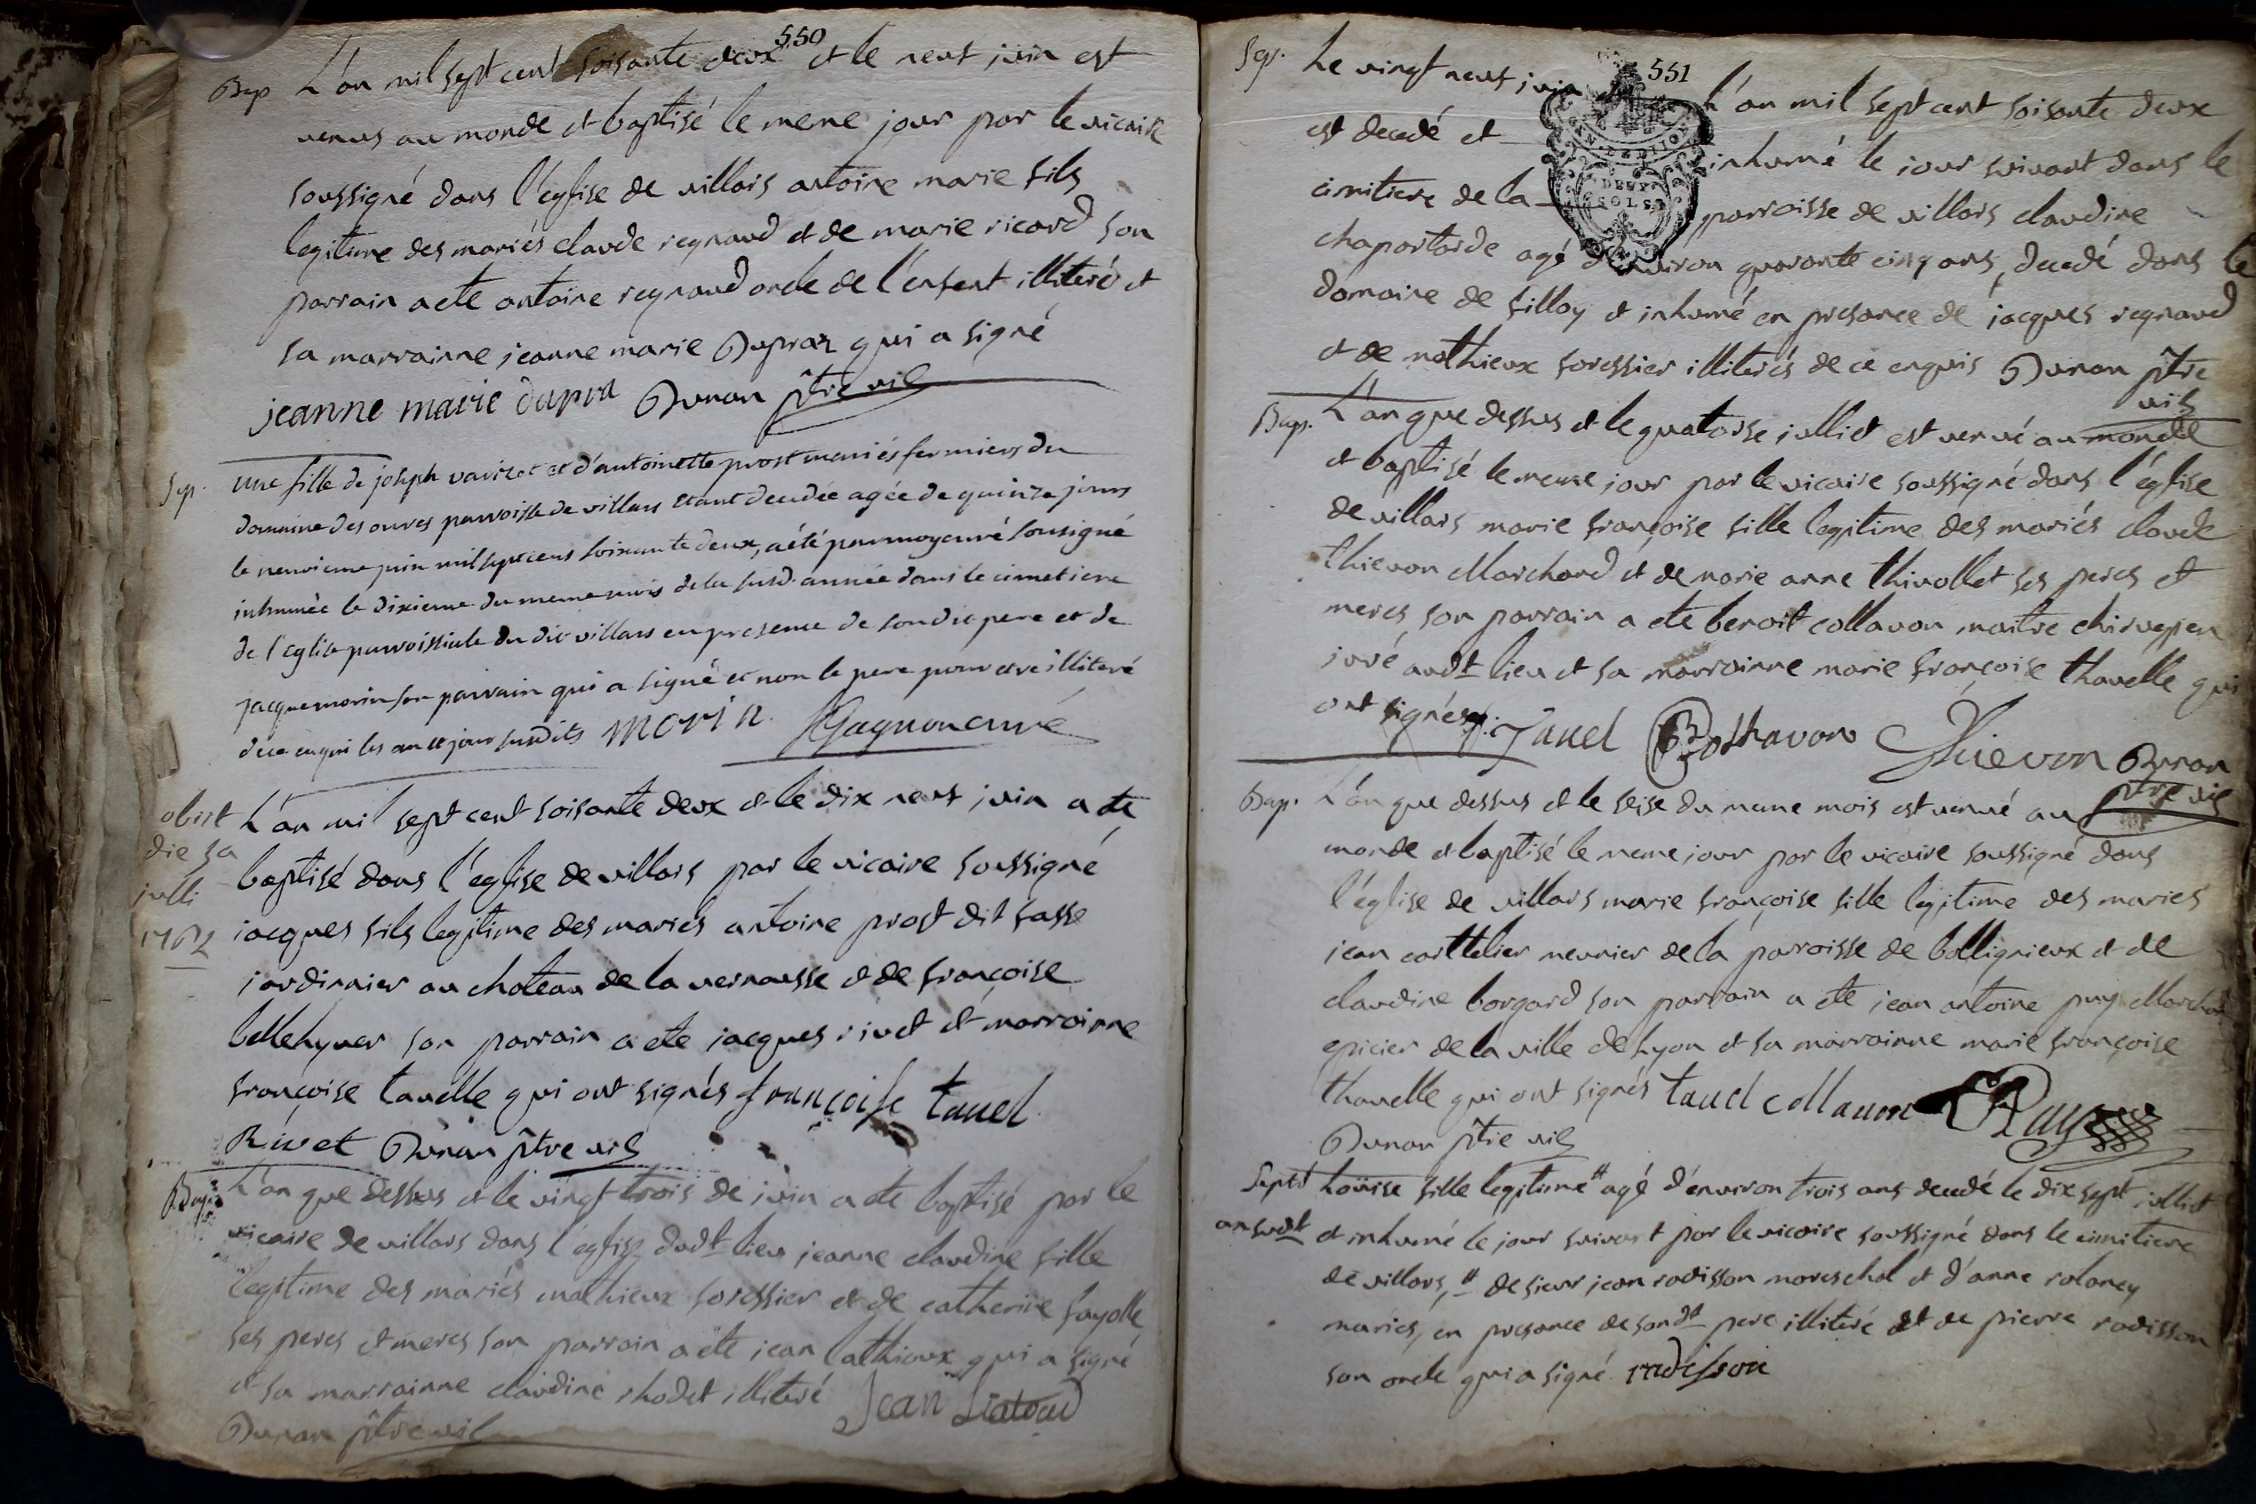 550
Bap L'an mil sept cent soisante deux et le neuf juin est
venus au monde et baptisé le meme jour par le vicaire
soussigné dans l'eglise de villars antoine marie fils
legitime des mariés claude regnaud et de marie ricard son
parrain a ete antoine regnaud oncle de l'enfent illiteré et
sa marrainne jeanne marie Dupraz qui a signé
jeanne marie dupra Dunan ptre vic
Sep. une fille de joseph varizot et d'antoinette prost mariés fermiers du
domaine des ouves parroisse de villars etant decedée agée de quinze jours
le neuvieme juin mil sept cens soixante deux, a été par moy curé sousigné
inhumée le dixieme du meme mois de la susd. année dans le cimetiere
de l'eglise parroissiale du dit villars en presence de son dit pere et de
jacque morin son parrain qui a signé et non le pere pour etre illiteré
de ce enqui les an et jour susdits morin Gagnon curé
obiit
die 5a
julli
1762
L'an mil sept cent soisante deux et le dix neuf juin a ete
baptisé dans l'eglise de villars par le vicaire soussigné
jacques fils legitime des mariés antoine prost dit fasse
jardinnier au chateau de la vernousse et de françoise
bellehyver son parrain a ete jacques rivet et marrainne
françoise tavelle qui ont signés françoise tavel
Rivet Dunan ptre vic
Bap. L'an que dessus et le vingt trois de juin a ete baptisé par le
vicaire de villars dans l'eglise dudt lieu jeanne claudine fille
legitime des mariés mathieux foressier et de catherine fayolle
ses peres et meres son parrain a ete jean lathioux qui a signé
et sa marrainne claudine rhodet illiteré Jean
Dunan ptre vic
551
Sep. Le vingt neuf juin L'an mil sept cent soisante deux
est decedé et inhumé le jour suivant dans le
cimitiere de la parroisse de villars claudine
chaportarde agé d'environ quarante cinq ans, decedé dans le
domaine de filloy et inhumé en presance de jacques regnaud
et de mathieux foressier illiterés de ce enquis Dunan ptre
vic
Bap. L'an que dessus et le quatorse julliet est venué au monde
et baptisé le meme jour par le vicaire soussigné dans l'église
de villars marie françoise fille legitime des mariés claude
thievon Marchand et de marie anne thivollet ses peres et
meres, son parrain a ete benoit collavon maitre chirugien
juré audt lieu et sa marrainne marie françoise thavelle qui
ont signés Tavel Thievon Dunan
ptre vic
Bap. L'an que dessus et le seise du meme mois est venué au
monde et baptisé le meme jour par le vicaire soussigné dans
l'église de villars marie françoise fille legitime des mariés
jean carttelier meunier de la paroisse de bollignieux et de
claudine borgard son parrain a ete jean antoine puy Marchan
epicier de la ville de Lyon et sa marrainne marie françoise
thavelle qui ont signés tavel collavon Puy
Dunan ptre vic
Sept Louise fille legitime # agé d'environ trois ans decedé le dix sept julliet
an sudt et inhumé le jour suivant par le vicaire soussigné dans le cimitiere
de villars, # de sieur jean radisson mareschal et d'anne rolancy
mariés, en presance de son dt pere illiteré et de pierre radisson
son oncle qui a signé radisson